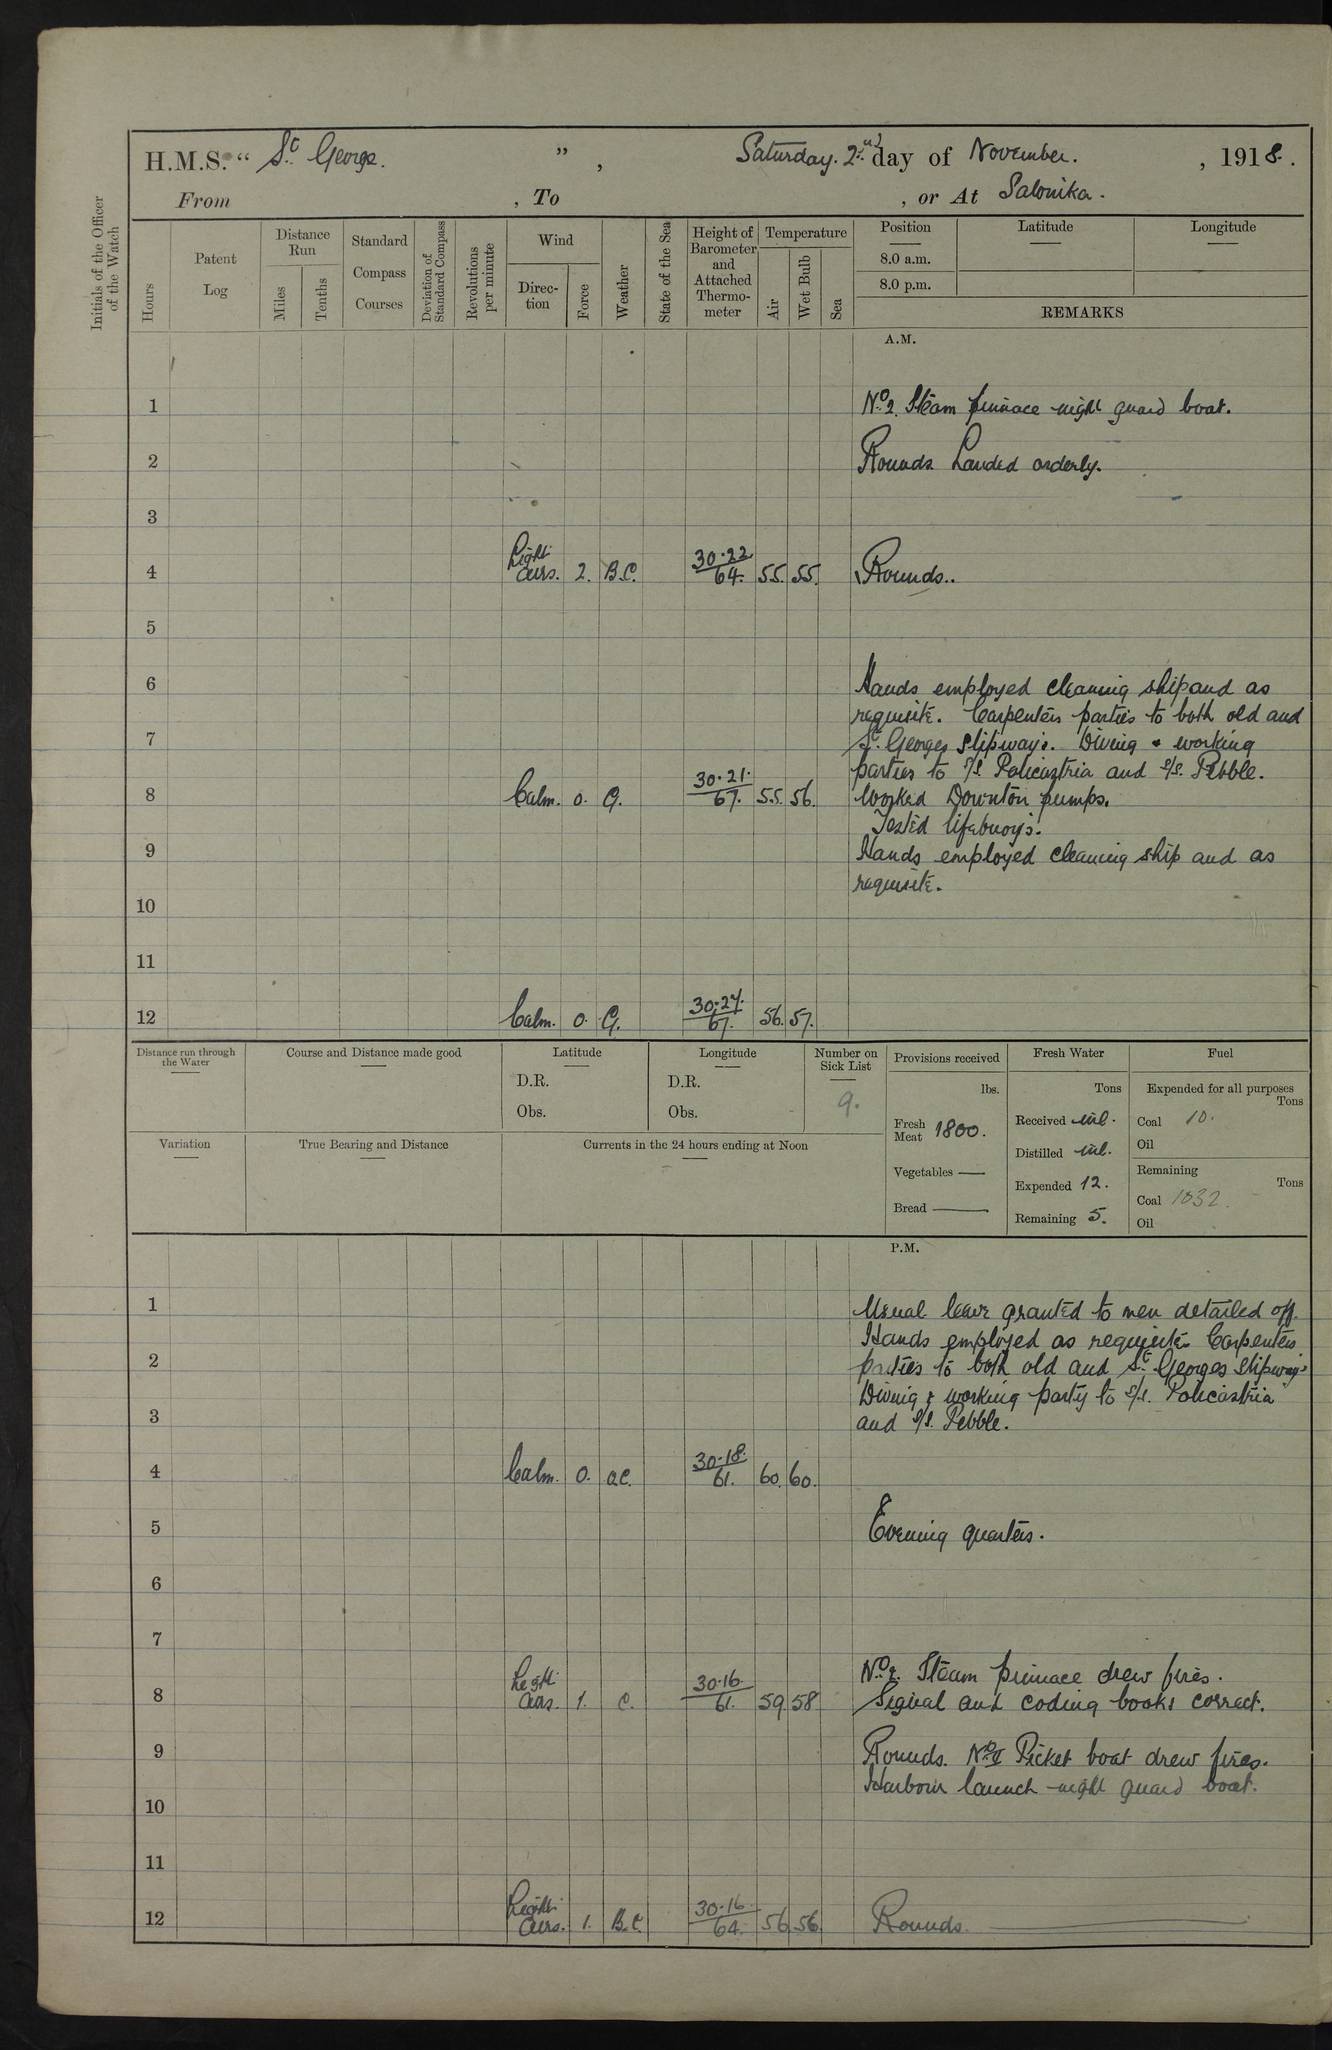 H.M.S. “ St George. ” , Saturday. 2nd day of November. , 1918.
From , To , or At Salonika.
Initials of the Officer of the Watch
Hours
Patent Log
Distance Run
Miles
Tenths
Standard Compass Courses
Deviation of Standard Compass
Revolutions per minute
Wind
Direction
Force
Weather
State of the Sea
Height of Barometer and Attached Thermometer
Temperature
Air
Wet Bulb
Sea
Position Latitude Longitude
8.0 a.m.
8.0 p.m.
REMARKS
A.M.
1 No 2. Steam pinnace night guard boat.
2 Rounds. Landed orderly.
3
4 Light airs. 2. B.C. 30.22 64. 55. 55. Rounds..
5
6 Hands employed cleaning ship and as
requisite. Carpenters parties to both old and
7 St. Georges slipways. Diving & working
parties to S/S. Policastria and S/S. Pebble.
8 Calm. 0. G. 30.21. 67. 55. 56. Worked Downton pumps.
Tested lifebuoys.
9 Hands employed cleaning ship and as
requisite.
10
11
12 Calm. 0. G. 30.27. 67. 56. 57.
Distance run through the Water
Course and Distance made good
Latitude
D.R.
Obs.
Longitude
D.R.
Obs.
Number on Sick List
9.
Provisions received
lbs.
Fresh Meat 1800.
Vegetables —
Bread —
Fresh Water
Tons
Received nil.
Distilled nil.
Expended 12.
Remaining 5.
Fuel
Expended for all purposes
Tons
Coal 10.
Oil
Remaining
Tons
Coal 1032.
Oil
Variation
True Bearing and Distance
Currents in the 24 hours ending at Noon
P.M.
1 Usual leave granted to men detailed off.
Hands employed as requisite. Carpenters
2 parties to both old and St. Georges slipways
Diving & working party to S/S. Policastria
3 and S/S. Pebble.
4 Calm. 0. o.c. 30.18. 61. 60. 60.
5 Evening quarters.
6
7
No 2. Steam pinnace drew fires.
8 Light airs. 1. C. 30.16. 61. 59 58 Signal and coding books correct.
9 Rounds. No II Picket boat drew fires.
Harbour launch night guard boat.
10
11
12 Light airs. 1. B.C. 30.16. 64. 56 56 Rounds.